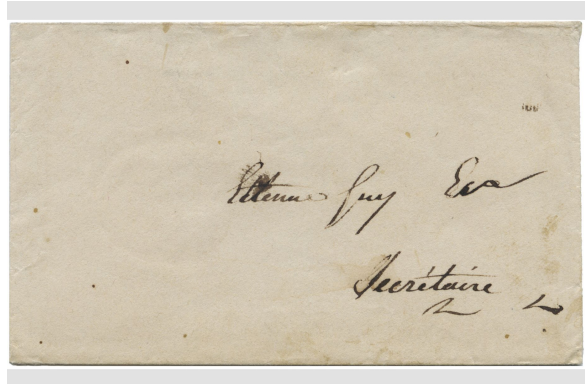 Etienne Guy Esq
Secrétaire